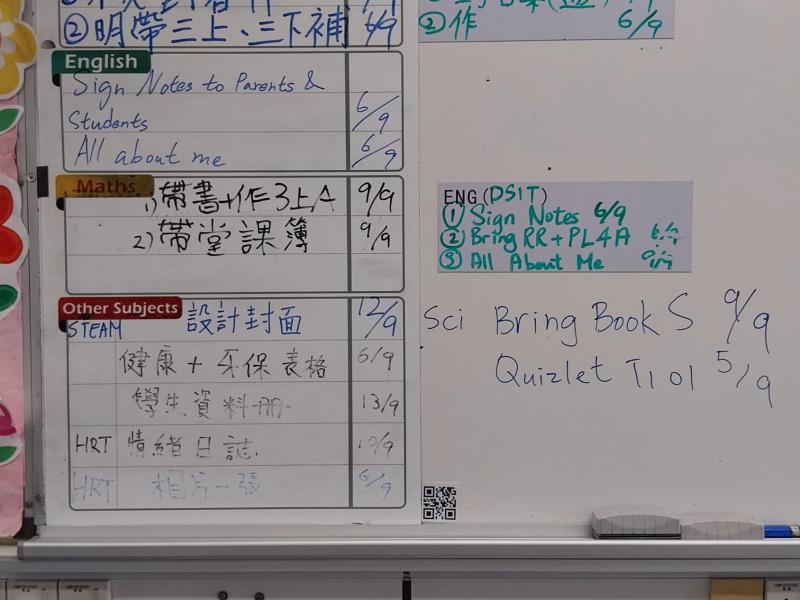 ②明帶三上、三下補 6/9
English
Sign Notes to Parents &
Students 6/9
All about me 6/9
Maths
1) 帶書+作3上A 9/9
2) 帶堂課簿 9/9
Other Subjects
STEAM 設計封面 12/9
健康+牙保表格 6/9
學生資料冊 13/9
HRT 情緒日誌. 10/9
HRT 相片一張 6/9
②作 6/9
ENG (DSIT)
① Sign Notes 6/9
② Bring RR + PL4A 6/9
③ All About Me
Sci Bring Book S 9/9
Quizlet T1 01 5/9